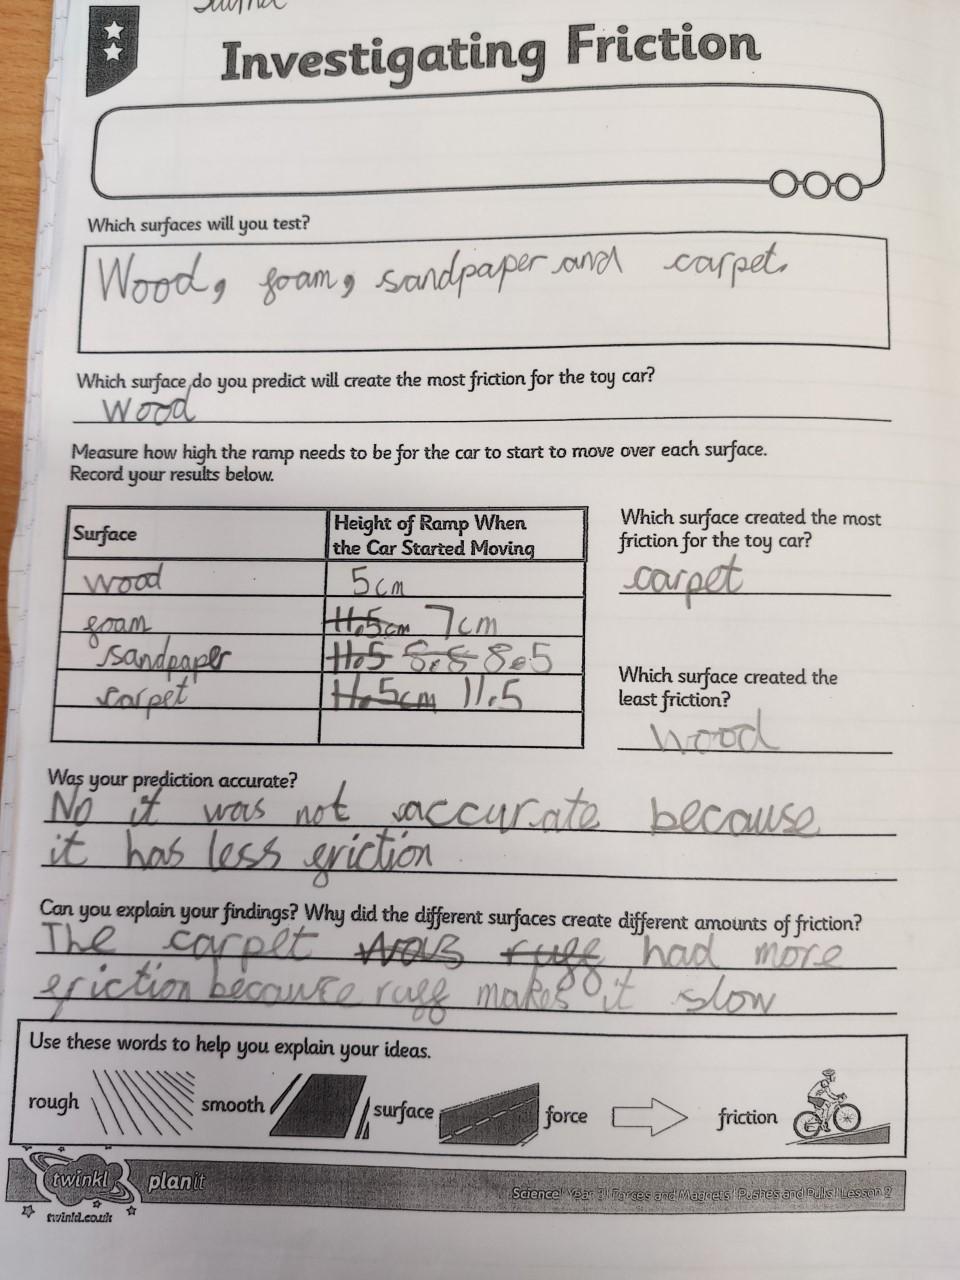 Investigating Friction
Which surfaces will you test?
Wood, foam, sandpaper and carpet.
Which surface do you predict will create the most friction for the toy car?
wood
Measure how high the ramp needs to be for the car to start to move over each surface.
Record your results below.
Surface
Height of Ramp When
the Car Started Moving
wood 5cm
foam 11.5cm 7cm
sandpaper 11.5 8.8 8.5
carpet 11.5cm 11.5
Which surface created the most
friction for the toy car?
carpet
Which surface created the
least friction?
wood
Was your prediction accurate?
No it was not accurate because
it has less friction
Can you explain your findings? Why did the different surfaces create different amounts of friction?
The carpet was ruff had more
friction because ruff makes it slow
Use these words to help you explain your ideas.
rough smooth surface force friction
twinkl planit
Science | Year 3 | Forces and Magnets | Pushes and Pulls | Lesson 2
twinkl.co.uk